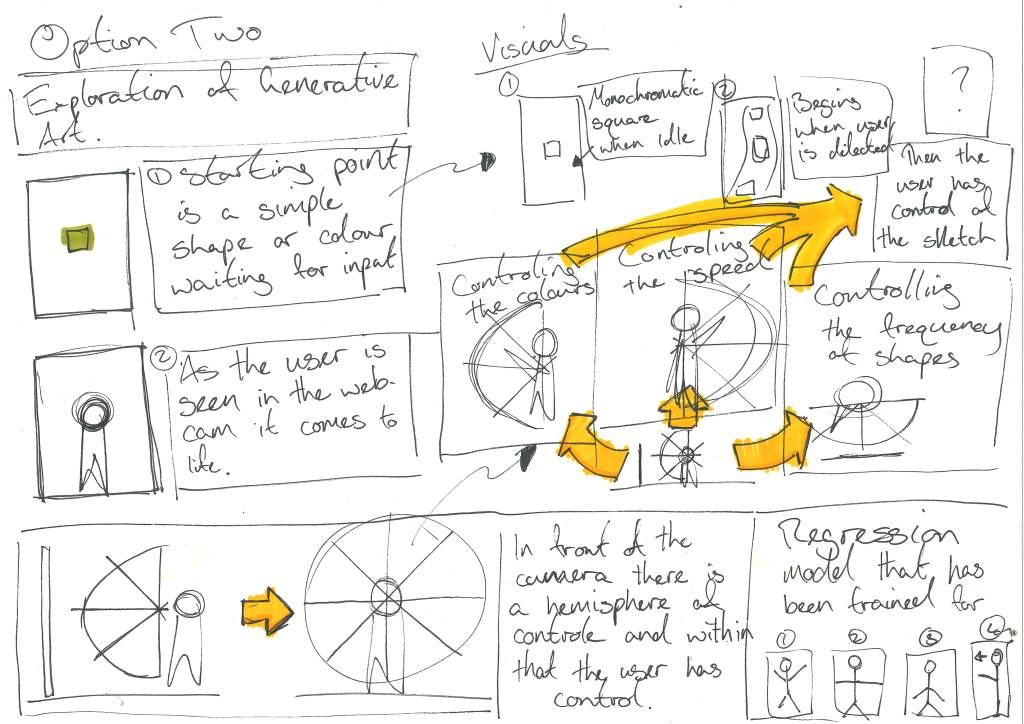 Option Two
Exploration of Generative
Art.
① Starting point
is a simple
shape or colour
waiting for input
② As the user is
seen in the web-
cam it comes to
life.
Visuals
①
Monochromatic
square
when idle
②
Begins
when user
is ditected
?
Then the
user has
control of
the sketch
Controling
the colours
Controling
the speed
Controlling
the frequency
of shapes
In front of the
camera there is
a hemisphere of
controle and within
that the user has
control.
Regression
model that has
been trained for
① ② ③ ④